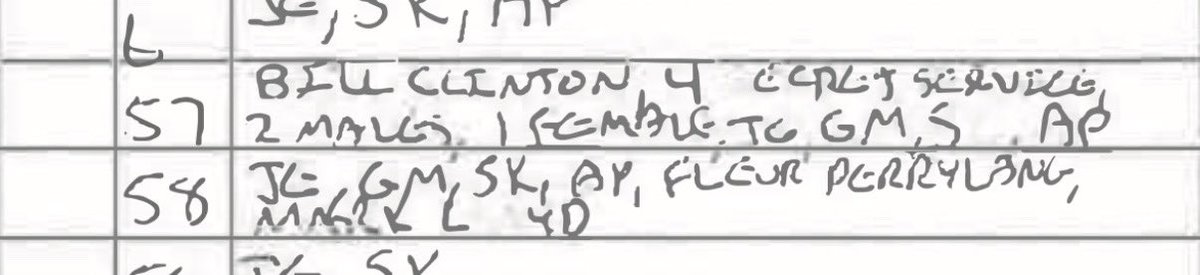 JE, SK, AP
BILL CLINTON, 4 SECRET SERVICE,
57 2 MALES, 1 FEMALE, JE, GM, S , AP
58 JE, GM, SK, AP, FLEUR PERRY LANG,
MARK L YD
JE SK